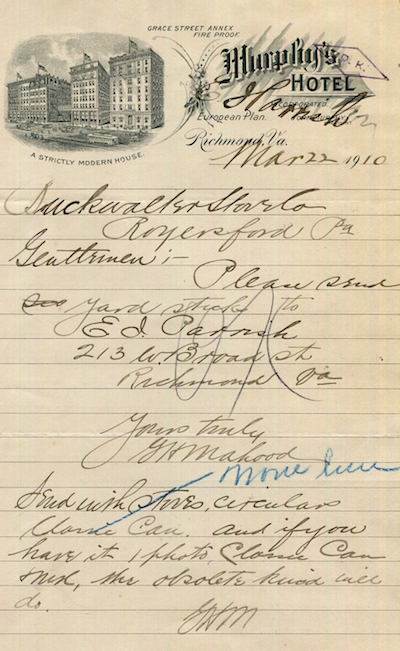 GRACE STREET ANNEX
FIRE PROOF.
Murphy's
HOTEL
P.K.
INCORPORATED
European Plan.
Richmond, Va.
Mar 22 1910
A STRICTLY MODERN HOUSE.
Buckwalter Stove Co
Royersford Pa
Gentlemen;-
Please send
yard stick to
E J. Parrish
213 W. Broad st
Richmond Va
Yours truly
GH Mahood
None here
Send with stoves, circulars
Classic Can. and if you
have it 1 photo Classic Can
the obsolete kind will
do.
GHM